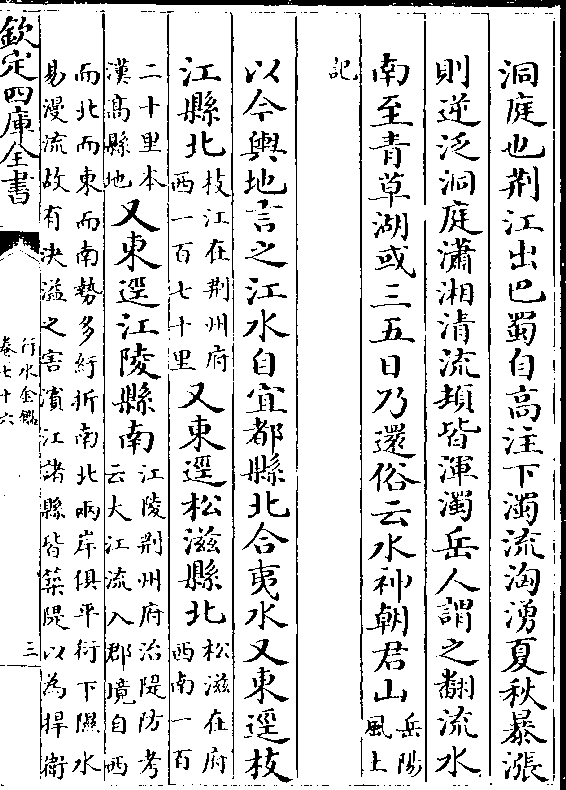 洞庭也荆江出巴蜀自高注下濁流洶湧夏秋暴漲
則逆泛洞庭瀟湘清流頓皆渾濁岳人謂之翻流水
南至青草湖或三五日乃還俗云水神朝君山岳陽風土
記
以今輿地言之江水自宜都縣北合夷水又東逕枝
江縣北枝江在荆州府西一百七十里又東逕松滋縣北松滋在府西南一百
二十里本漢高縣地又東逕江陵縣南江陵荆州府治隄防考云大江流入郡境自西
而北而東而南勢多紆折南北兩岸俱平衍下隰水
易漫流故有決溢之害濱江諸縣皆築隄以為捍衛
欽定四庫全書
行水金鑑
卷七十六
三